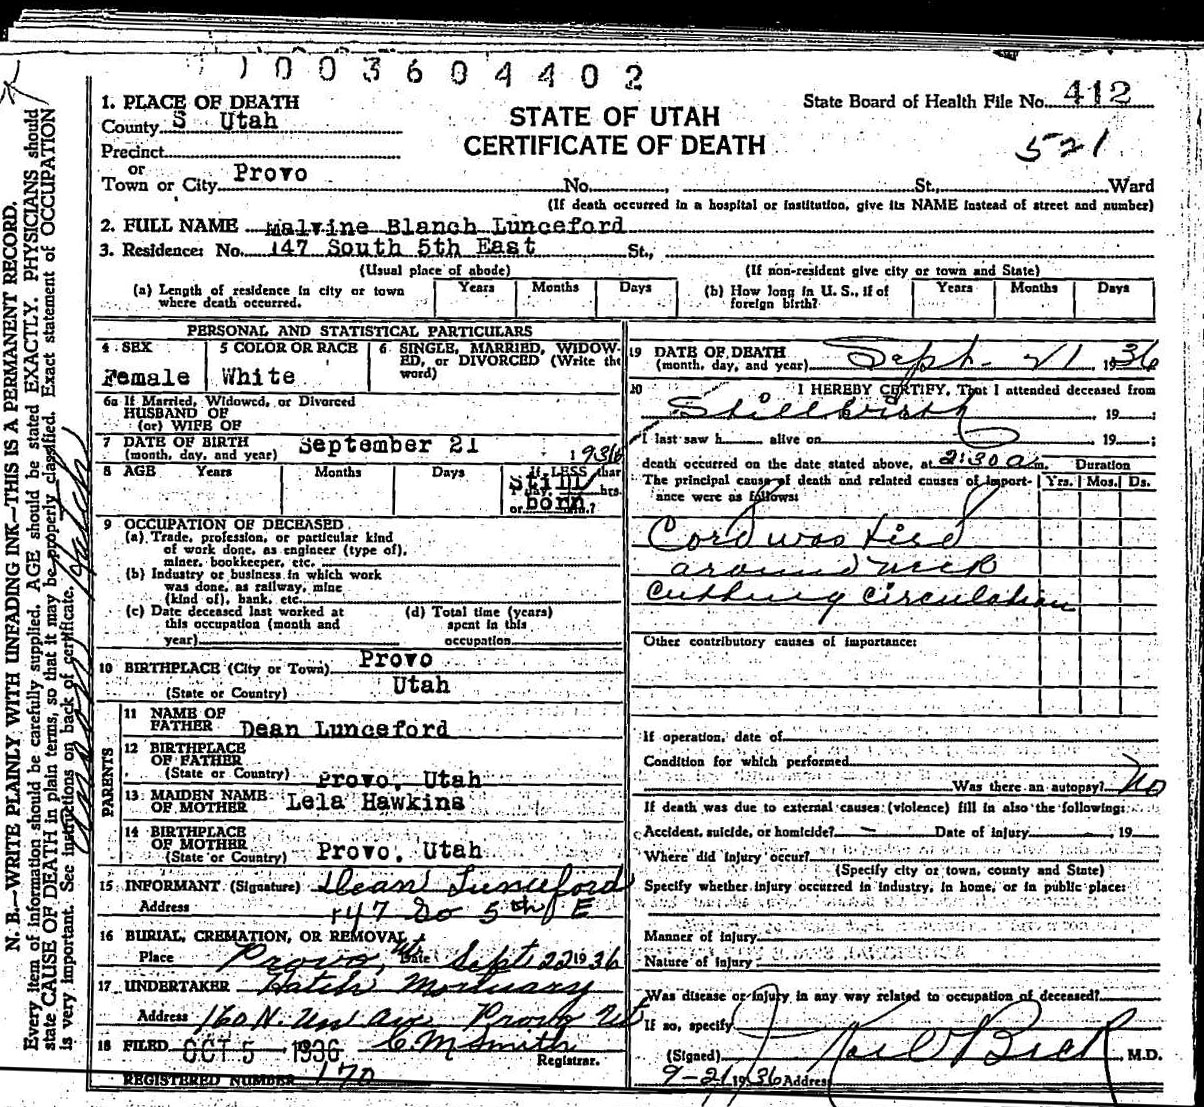 1003604402
1. PLACE OF DEATH
County S Utah
Precinct
or
Town or City Provo No. , St., Ward
STATE OF UTAH
CERTIFICATE OF DEATH
State Board of Health File No. 412
521
(If death occurred in a hospital or institution, give its NAME instead of street and number)
2. FULL NAME Malvine Blanch Lunceford
3. Residence: No. 147 South 5th East St.,
(Usual place of abode) (If non-resident give city or town and State)
(a) Length of residence in city or town where death occurred. Years Months Days
(b) How long in U. S., if of foreign birth? Years Months Days
PERSONAL AND STATISTICAL PARTICULARS
4 SEX Female
5 COLOR OR RACE White
6 SINGLE, MARRIED, WIDOWED, OR DIVORCED (Write the word)
6a If Married, Widowed, or Divorced
HUSBAND OF
(or) WIFE OF
7 DATE OF BIRTH September 21 1936
(month, day, and year)
8 AGE Years Months Days If LESS than
1 day, hrs.
or min.?
Still born
9 OCCUPATION OF DECEASED
(a) Trade, profession, or particular kind
of work done, as engineer (type of),
miner, bookkeeper, etc.
(b) Industry or business in which work
was done, as railway, mine
(kind of), bank, etc.
(c) Date deceased last worked at
this occupation (month and
year)
(d) Total time (years)
spent in this
occupation
10 BIRTHPLACE (City or Town) Provo
(State or Country) Utah
PARENTS
11 NAME OF
FATHER Dean Lunceford
12 BIRTHPLACE
OF FATHER
(State or Country) Provo, Utah
13 MAIDEN NAME
OF MOTHER Lela Hawkins
14 BIRTHPLACE
OF MOTHER
(State or Country) Provo, Utah
15 INFORMANT (Signature) Dean Lunceford
Address 147 So 5th E
16 BURIAL, CREMATION, OR REMOVAL
Place Provo, Ut Date Sept 22 1936
17 UNDERTAKER Hatch Mortuary
Address 160 N. Un Ave Provo Ut
18 FILED OCT 5 1936 C. M Smith
Registrar.
REGISTERED NUMBER 170
19 DATE OF DEATH
(month, day, and year) Sept. 21 1936
20 I HEREBY CERTIFY, That I attended deceased from
Stillbirth , 19 ;
I last saw h alive on 19 ;
death occurred on the date stated above, at 2:30 a m. Duration
The principal cause of death and related causes of importance were as follows: Yrs. Mos. Ds.
Cord was tied
around neck
cutting circulation
Other contributory causes of importance:
If operation, date of
Condition for which performed
Was there an autopsy? No
If death was due to external causes (violence) fill in also the following:
Accident, suicide, or homicide? – Date of injury , 19
Where did injury occur?
(Specify city or town, county and State)
Specify whether injury occurred in industry, in home, or in public place:
Manner of injury
Nature of injury
Was disease or injury in any way related to occupation of deceased?
If so, specify
(Signed) Beck , M.D.
9-21 1936 Address
N. B.—WRITE PLAINLY WITH UNFADING INK—THIS IS A PERMANENT RECORD.
Every item of information should be carefully supplied. AGE should be stated EXACTLY. PHYSICIANS should
state CAUSE OF DEATH in plain terms, so that it may be properly classified. Exact statement of OCCUPATION
is very important. See instructions on back of certificate.